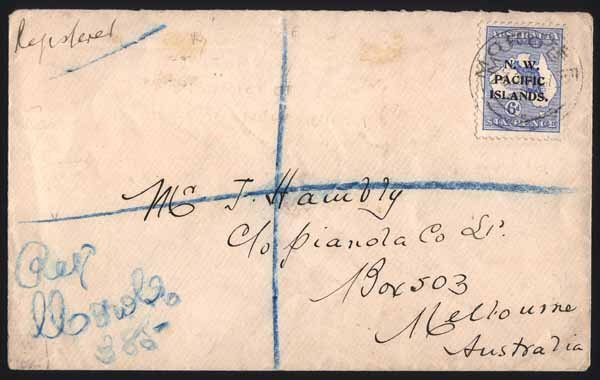 Registered
AUSTRALIA
N. W.
PACIFIC
ISLANDS.
6D
SIX PENCE
Mr J. Hambly
C/o Pianola Co Ld.
Box 503
Melbourne
Australia
Reg
385